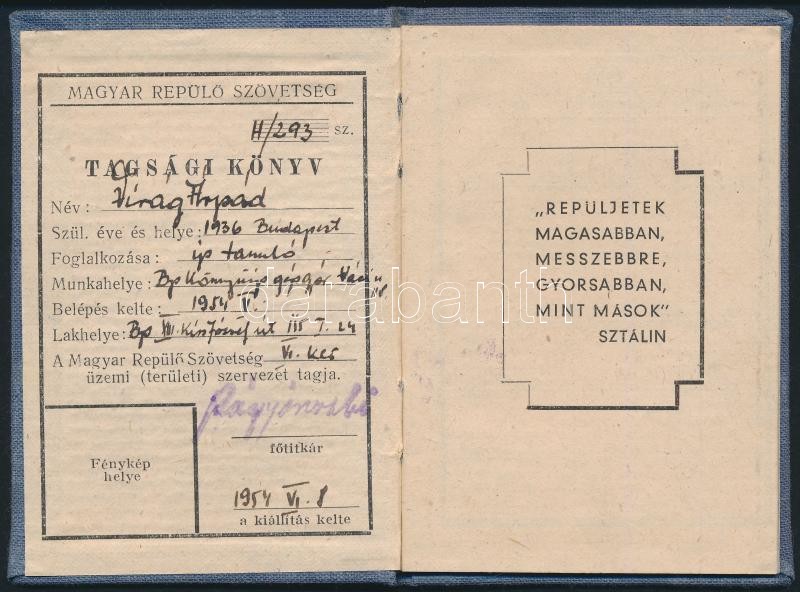 MAGYAR REPÜLŐ SZÖVETSÉG
II/293 sz.
TAGSÁGI KÖNYV
Név: Virág Árpád
Szül. éve és helye: 1936 Budapest
Foglalkozása: ip tanuló
Munkahelye: Bp Könnyűip gépgyár Váci u
Belépés kelte: 1954 V.
Lakhelye: Bp VIII. József út III 7. 24
A Magyar Repülő Szövetség VI. ker
üzemi (területi) szervezet tagja.
főtitkár
Fénykép
helye
1954 VI. 8
a kiállítás kelte
„REPÜLJETEK
MAGASABBAN,
MESSZEBBRE,
GYORSABBAN,
MINT MÁSOK"
SZTÁLIN
darabanth